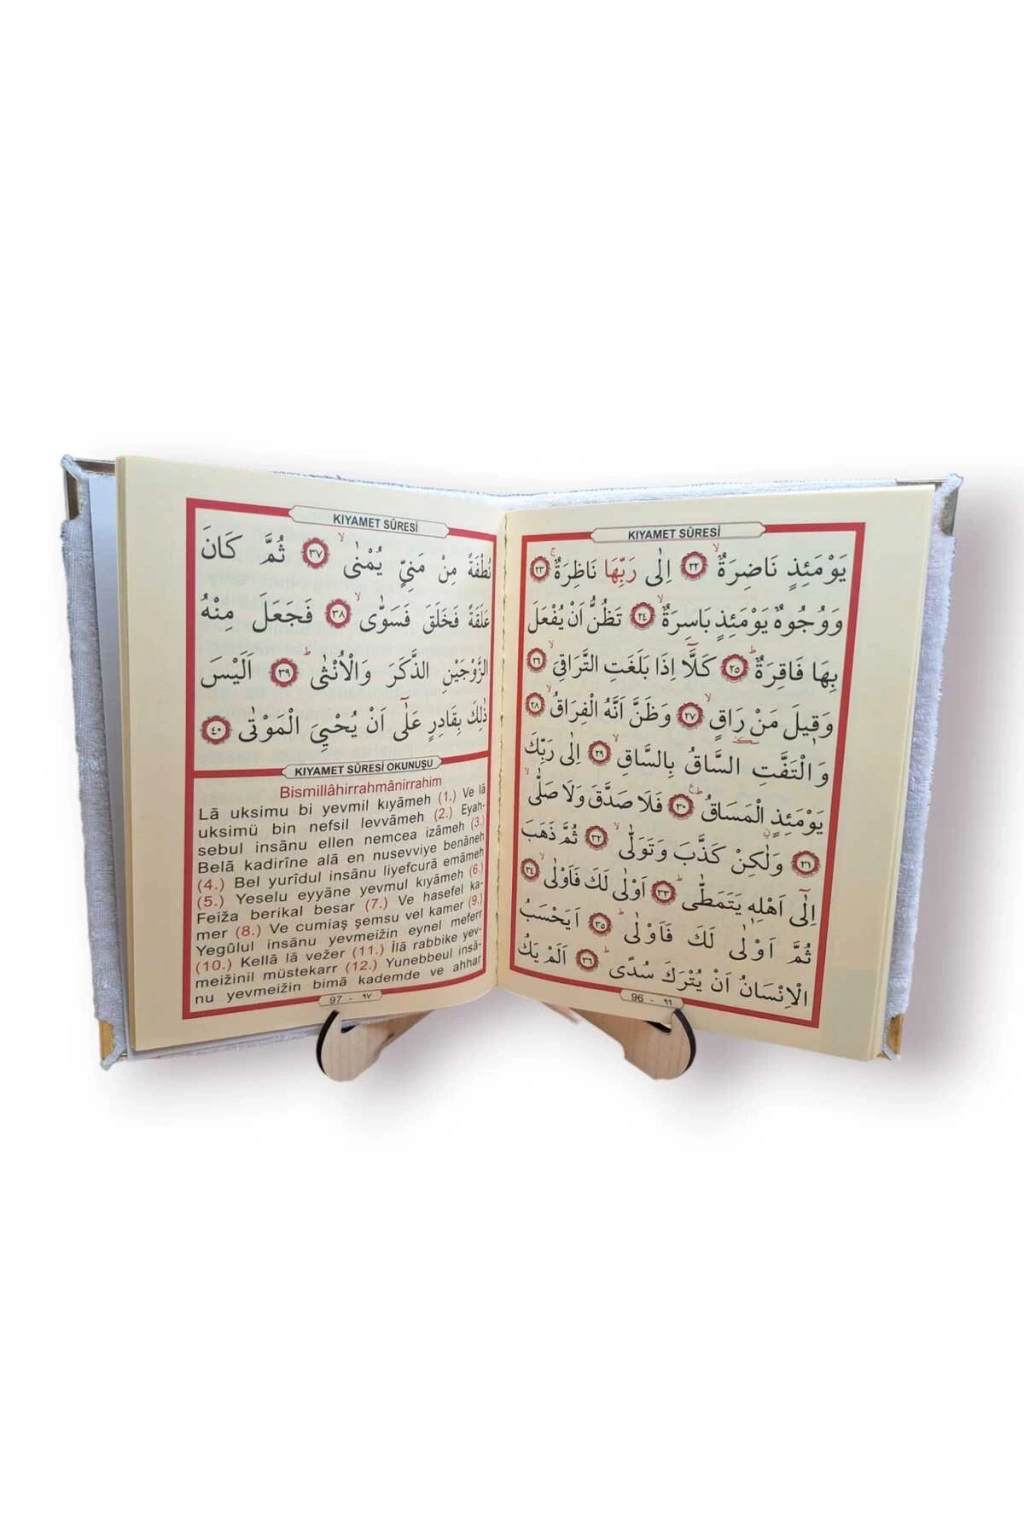 KIYAMET SÛRESİ
يَوْمَئِذٍ نَاضِرَةٌ ﴿٢٢﴾ اِلٰى رَبِّهَا نَاظِرَةٌ ﴿٢٣﴾
وَوُجُوهٌ يَوْمَئِذٍ بَاسِرَةٌ ﴿٢٤﴾ تَظُنُّ اَنْ يُفْعَلَ
بِهَا فَاقِرَةٌ ﴿٢٥﴾ كَلَّٓا اِذَا بَلَغَتِ التَّرَاقِيَ ﴿٢٦﴾
وَقِيلَ مَنْ رَاقٍ ﴿٢٧﴾ وَظَنَّ اَنَّهُ الْفِرَاقُ ﴿٢٨﴾
وَالْتَفَّتِ السَّاقُ بِالسَّاقِ ﴿٢٩﴾ اِلٰى رَبِّكَ
يَوْمَئِذٍ الْمَسَاقُ ﴿٣٠﴾ فَلَا صَدَّقَ وَلَا صَلّٰى
﴿٣١﴾ وَلٰكِنْ كَذَّبَ وَتَوَلّٰى ﴿٣٢﴾ ثُمَّ ذَهَبَ
اِلٰٓى اَهْلِهٖ يَتَمَطّٰى ﴿٣٣﴾ اَوْلٰى لَكَ فَاَوْلٰى ﴿٣٤﴾
ثُمَّ اَوْلٰى لَكَ فَاَوْلٰى ﴿٣٥﴾ اَيَحْسَبُ
الْاِنْسَانُ اَنْ يُتْرَكَ سُدًى ﴿٣٦﴾ اَلَمْ يَكُ
96 - ٩٦
KIYAMET SÛRESİ
نُطْفَةً مِنْ مَنِيٍّ يُمْنٰى ﴿٣٧﴾ ثُمَّ كَانَ
عَلَقَةً فَخَلَقَ فَسَوّٰى ﴿٣٨﴾ فَجَعَلَ مِنْهُ
الزَّوْجَيْنِ الذَّكَرَ وَالْاُنْثٰى ﴿٣٩﴾ اَلَيْسَ
ذٰلِكَ بِقَادِرٍ عَلٰٓى اَنْ يُحْيِيَ الْمَوْتٰى ﴿٤٠﴾
KIYAMET SÛRESİ OKUNUŞU
Bismillâhirrahmânirrahim
Lâ uksimu bi yevmil kıyâmeh (1.) Ve lâ
uksimü bin nefsil levvâmeh (2.) Eyah-
sebul insânu ellen nemcea izâmeh (3.)
Belâ kadirîne alâ en nusevviye benâneh
(4.) Bel yurîdul insânu liyefcurâ emâmeh
(5.) Yeselu eyyâne yevmul kıyâmeh (6.)
Feiža berikal besar (7.) Ve hasefel ka-
mer (8.) Ve cumiaş şemsu vel kamer (9.)
Yegûlul insânu yevmeižin eynel meferr
(10.) Kellâ lâ vežer (11.) İlâ rabbike yev-
meižinil müstekarr (12.) Yunebbeul insâ-
nu yevmeižin bimâ kademde ve ahhar
97 - ٩٧